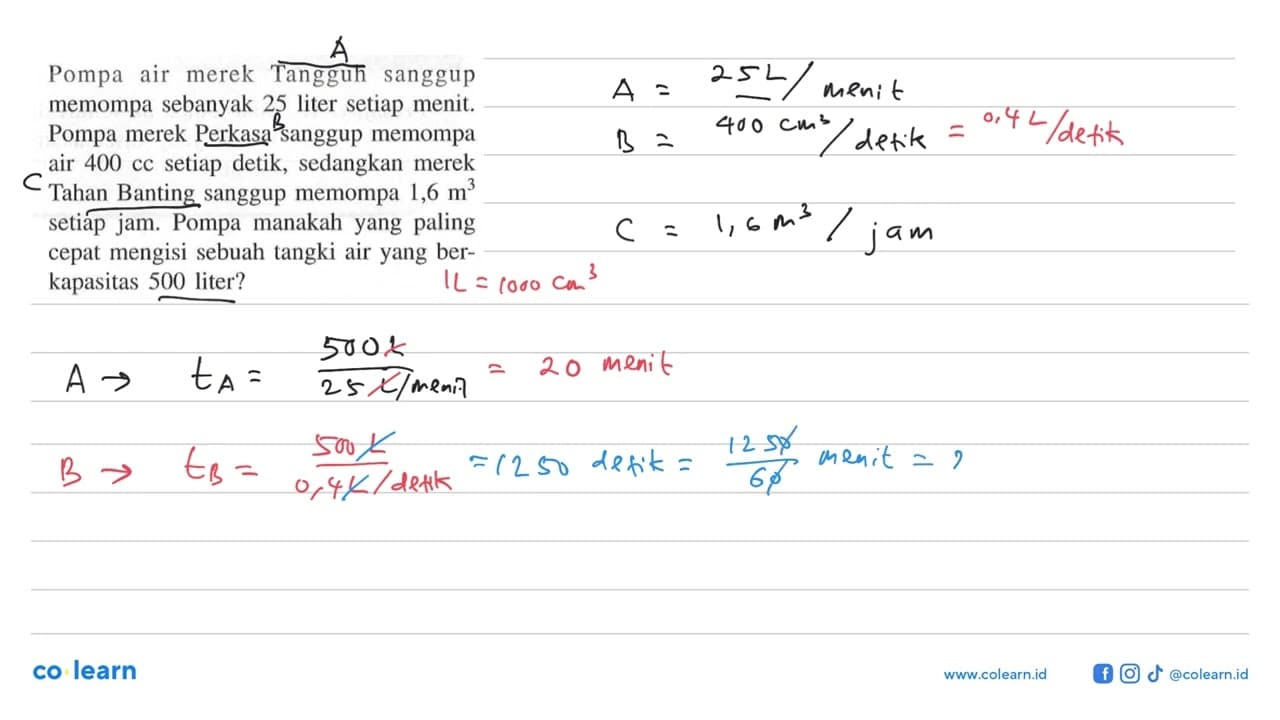 A
Pompa air merek Tangguh sanggup
memompa sebanyak 25 liter setiap menit.
B
Pompa merek Perkasa sanggup memompa
air 400 cc setiap detik, sedangkan merek
C Tahan Banting sanggup memompa 1,6 m³
setiap jam. Pompa manakah yang paling
cepat mengisi sebuah tangki air yang ber-
kapasitas 500 liter?
A = 25 L/menit
B = 400 cm³/detik = 0,4 L/detik
C = 1,6 m³/jam
1L = 1000 cm³
A → tA = 500 L / 25 L/menit = 20 menit
B → tB = 500 L / 0,4 L/detik = 1250 detik = 1250/60 menit = 2
co learn
www.colearn.id
@colearn.id